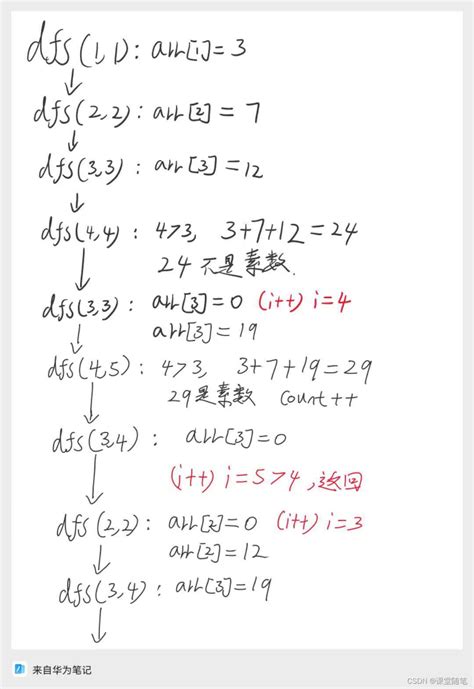 dfs(1,1): arr[1]=3
dfs(2,2): arr[2]=7
dfs(3,3): arr[3]=12
dfs(4,4): 4>3, 3+7+12=24
24不是素数.
dfs(3,3): arr[3]=0 (i++) i=4
arr[3]=19
dfs(4,5): 4>3, 3+7+19=29
29是素数 count++
dfs(3,4): arr[3]=0
(i++) i=5>4,返回
dfs(2,2): arr[2]=0 (i++) i=3
arr[2]=12
dfs(3,4): arr[3]=19
来自华为笔记
CSDN @课堂随笔